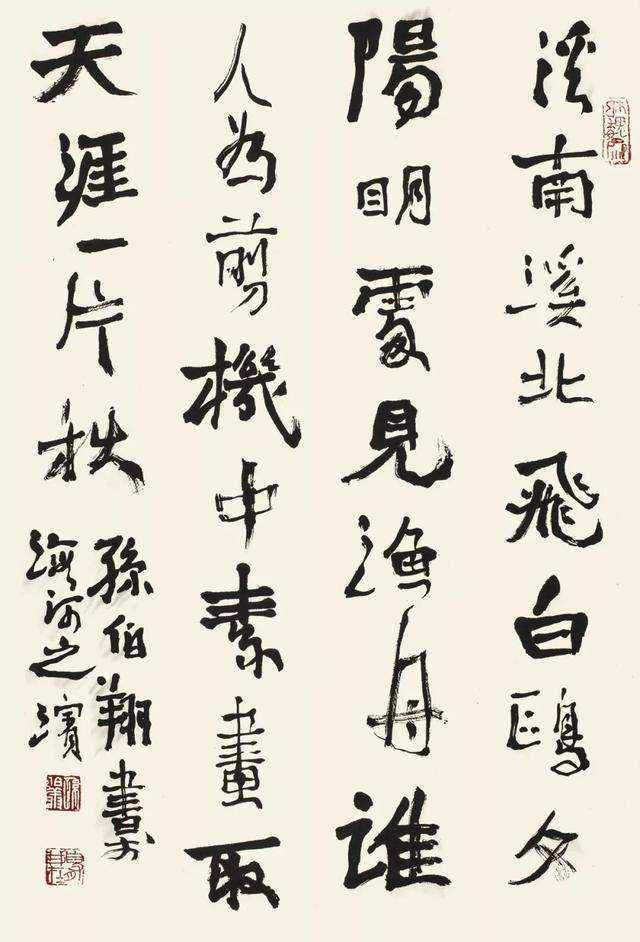 溪南溪北飛白鷗夕
陽眀處見漁舟誰
人為剪機中素畫取
天涯一片秋
孫伯翔書於
海河之濱